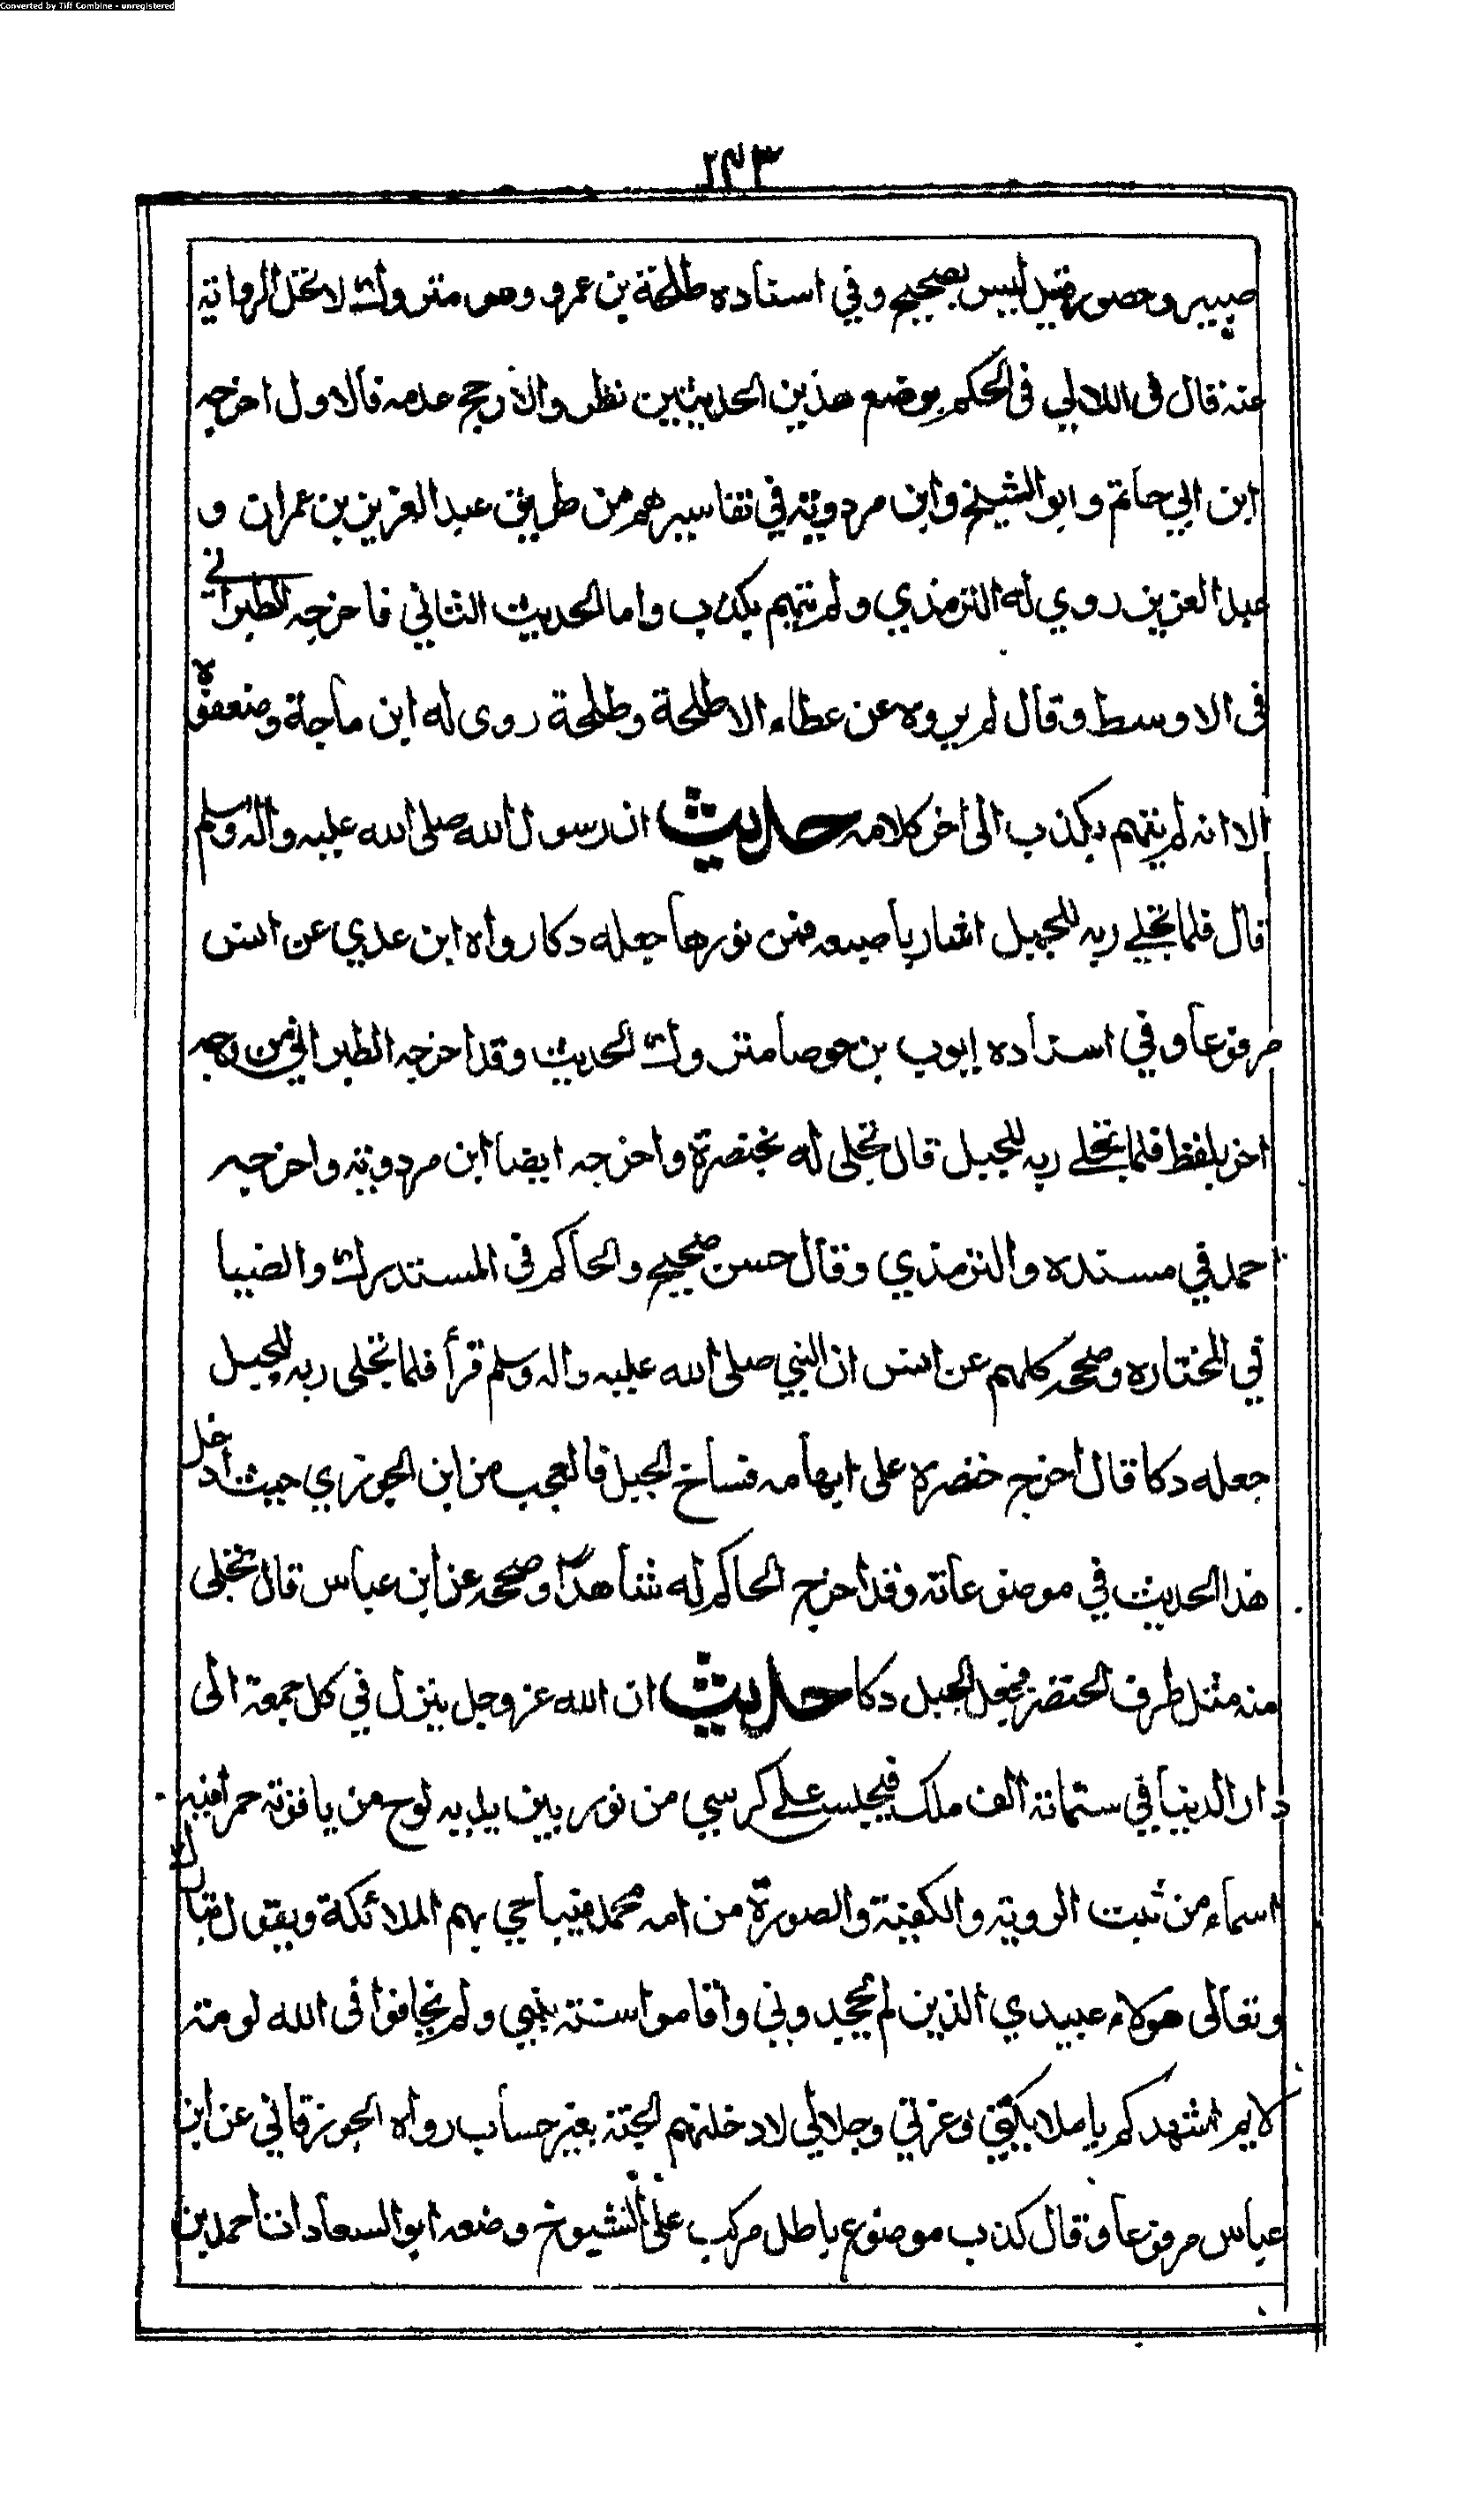 Converted by Tiff Combine - unregistered
٢٤٣
صبير وحصور قيل ليس بصحيح وفي اسناده طلحة بن عمرو وهو متروك لا تحل الرواية
عنه قال في اللالي في الحكم بوضع هذين الحديثين نظر والارجح عدمه فالاول اخرجه
ابن ابي حاتم وابو الشيخ وابن مردوية في تفاسيرهم من طريق عبد العزيز بن عمران و
عبد العزيز روي له الترمذي ولم يتهم بكذب واما الحديث الثاني فاخرجه الطبراني
في الاوسط وقال لم يروه عن عطاء الا طلحة وطلحة روى له ابن ماجة وضعفوه
الا انه لم يتهم بكذب الى اخر كلامه حديث ان رسول الله صلى الله عليه واله وسلم
قال فلما تجلے ربه للجبل اشار باصبعه فمن نورها جعله دكا رواه ابن عدي عن انس
مرفوعا وفي اسناده ايوب بن خوصا متروك الحديث وقد اخرجه الطبراني من وجه
اخر بلفظ فلما تجلے ربه للجبل قال تجلى له بخنصرة واخرجه ايضا ابن مردوية واخرجه
احمد في مسنده والترمذي وقال حسن صحيح والحاكم في المستدرك والضيا
في المختاره وصححه كلهم عن انس ان النبي صلى الله عليه واله وسلم قرأ فلما تجلى ربه للجبل
جعله دكا قال اخرج خنصره على ابهامه فساخ الجبل فالعجب من ابن الجوزي حيث ادخل
هذا الحديث في موضوعاته وقد اخرج الحاكم له شاهدًا وصححه عن ابن عباس قال تجلى
منه مثل طرف الخنصر فجعل الجبل دكا حديث ان الله عز وجل ينزل في كل جمعة الى
دار الدنيا في ستمائة الف ملك فيجلس علے كرسي من نور بين يديه لوح من ياقوتة حمرا فيه
اسماء من ثبت الروية والكفية والصورة من امه محمد فيباحي بهم الملائكة ويقول تبارك
وتعالى هولاء عبيدي الذين لم يجحدوني واقاموا سنة نبيي ولم يخافوا في الله لومة
لايم اشهدكم يا ملايكتي وعزتي وجلالي لادخلنهم الجنة بغير حساب رواه الجوزقاني عن ابن
عباس مرفوعا وقال كذب موضوع باطل مركب على الشيوخ وضعه ابو السعادات احمد بن